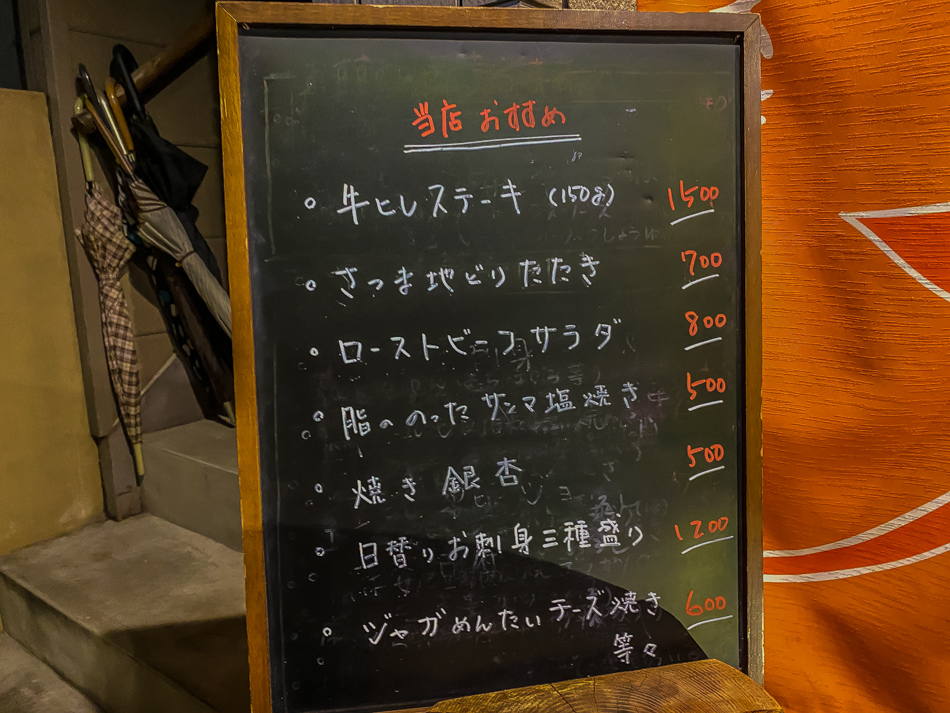 当店おすすめ
○ 牛ヒレステーキ (150g) 1500
○ さつま地どりたたき 700
○ ローストビーフサラダ 800
○ 脂ののったサンマ塩焼き 500
○ 焼き銀杏 500
○ 日替りお刺身三種盛り 1200
○ ジャガめんたいチーズ焼き 600
等々